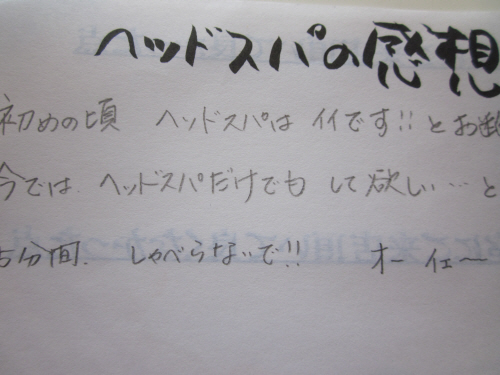 ヘッドスパの感想
初めの頃 ヘッドスパは イイです!!とお
今では、ヘッドスパだけでも して欲しい…と
5分間、しゃべらないで!! オー イェ〜